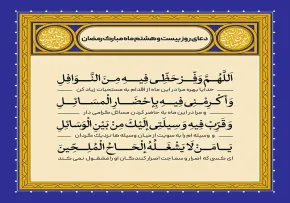 دعای روز بیست و هشتم ماه مبارک رمضان
اَللّهُمَّ وَفِّرْ حَظّی فیهِ مِنَ النَّوافِلِ
خدایا بهره مرا در این ماه از اقدام به مستحبات زیاد کن
وَ اَکْرِمْنی فیهِ بِاِحْضارِ الْمَسائِلِ
و مرا در این ماه به حاضر کردن مسائل گرامی دار
وَ قَرِّبْ فیهِ وَسیلَتی اِلَیْکَ مِنْ بَیْنِ الْوَسائِلِ
و وسیله ام را به سویت از میان وسیله ها نزدیک گردان
یا مَنْ لا یَشْغَلُهُ اِلْحاحُ الْمُلِحّینَ
ای کسی که اصرار و سماجت اصرار کنندگان او را مشغول نمی کند